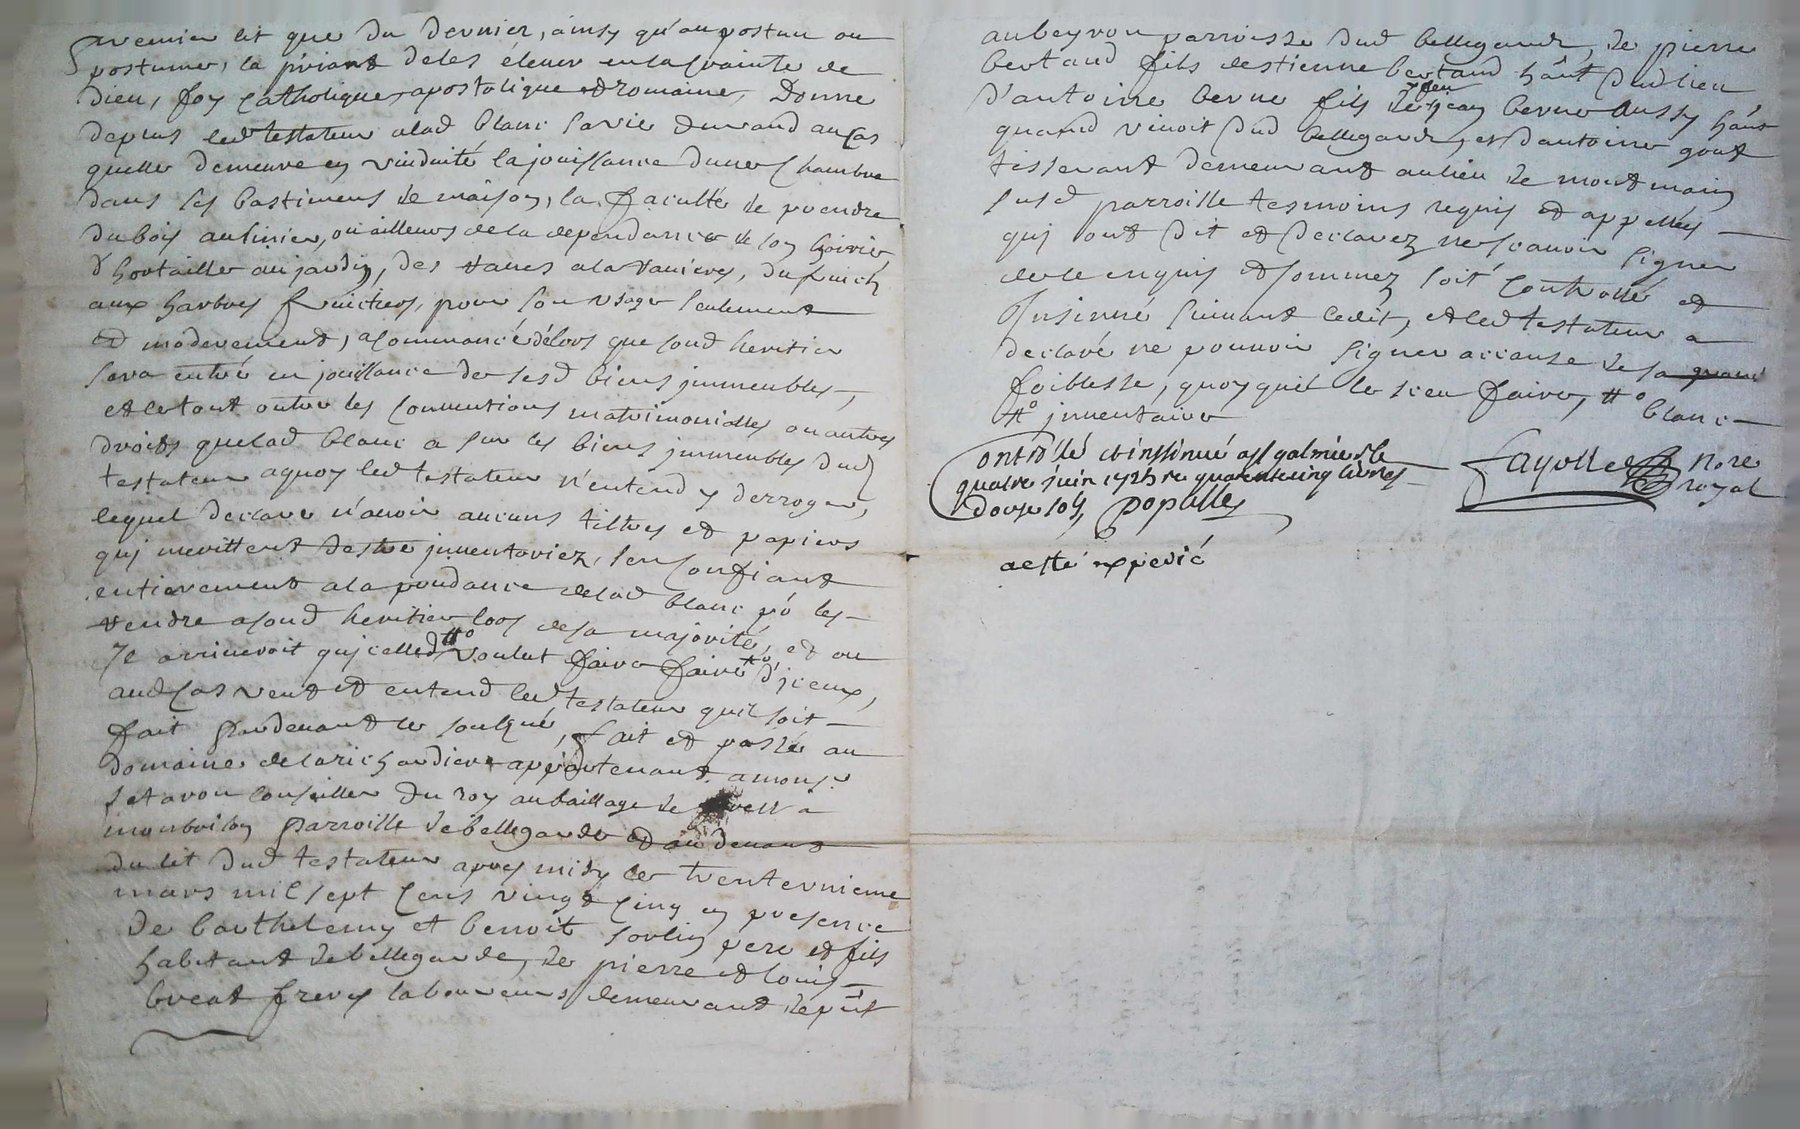 premier lit que du dernier, ainsy qu'au postum ou
postume, la priant deles élever en la crainte de
Dieu, foy catholique, apostolique et romaine, Donne
depuis led testateur alad blanc sa vie durand au cas
quelle demeure en viduité la jouissance dune chambre
dans les bastimens de maison, la faculté de prendre
du bois au linier, ou ailleurs de la dependance de son hoirie
d'hortailler au jardin, des raves ala raviere, du fruich
aux harbres fruictiers, pour son usage seulement
et moderement, a commancé délors que soud heritier
sera entré en jouissance de sesd biens jmmeubles,
et le tout outre les conventions matrimonialles ou autres
droits quelad blanc a sur les biens jmmeubles dud
testateur aquoy led testateur n'entend y derroger,
lequel declare n'avoir aucuns tiltres et papiers
quj merittent destre jnventoriez, sen confiant
entierement ala prudance delad blanc po les
rendre asond heritier lors de sa majorité, et ou
Je arriveroit qujcelled #o voulut faire faire #o d'jceux,
aud cas veut et entend led testateur quil soit
fait pardevant le soulsigné, fait et passé au
domaine de larichardiere appartenant amonsr
Jetavou conseiller du roy au baillage de
monbrison parroisse de bellegarde et au devant
du lit dud testateur apres midy le trente unieme
mars mil sept cens vingt cinq en presence
de barthelemy et benoit sorlin pere et fils
habitant de bellegarde, de pierre et louis
breat freres laboureurs demeurant de pnt
aubeyron parroisse dud bellegarde, de pierre
bertaud fils destienne bertaud hânt dud lieu
d'antoine berne fils de feu jean berne aussy hânt
quand vivoit dud bellegarde, et dantoine gout
tisserant demeurant au lieu de montmain
susd parroisse tesmoins requis et appellés
quj ont dit et declarez ne scavoir signer
dece enquis et sommez soit controllé et
Jnsinué suivant ledit, et led testateur a
declaré ne pouvoir signer accause de sa grand
foiblesse, quoyquil le sceu faire, #o blanc
#o jnventaire
Controllé et inssinué a st galmier le
quatre juin 1725 re quarente cinq livres
douze sols Populle
Fayolle Nore
royal
a esté expedié